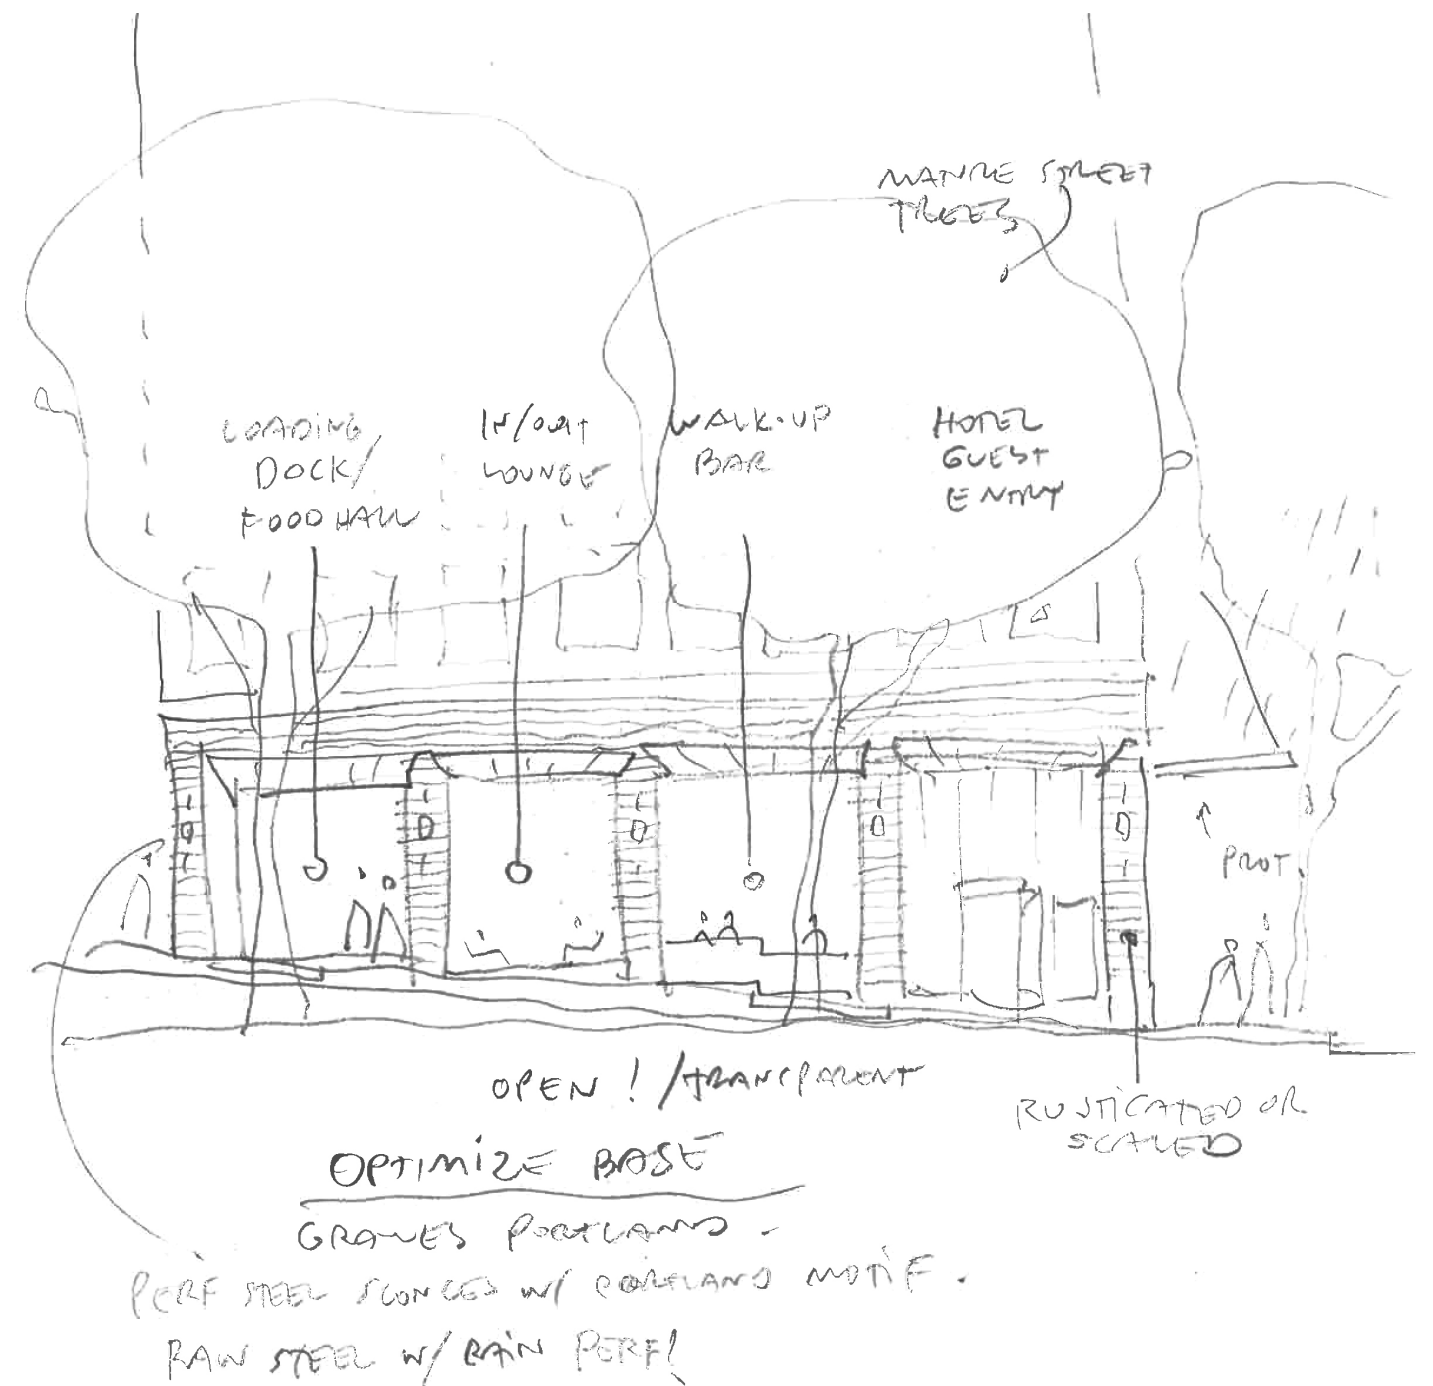 MATURE STREET
TREES
LOADING
DOCK/
FOOD HALL
IN/OUT
LOUNGE
WALK-UP
BAR
HOTEL
GUEST
ENTRY
PROT.
OPEN! /TRANSPARENT
RUSTICATED OR
SCALED
OPTIMIZE BASE
GRAVES PORTLAND.
PERF STEEL SCONCES W/ PORTLAND MOTIF.
RAW STEEL W/ RAIN PERF!